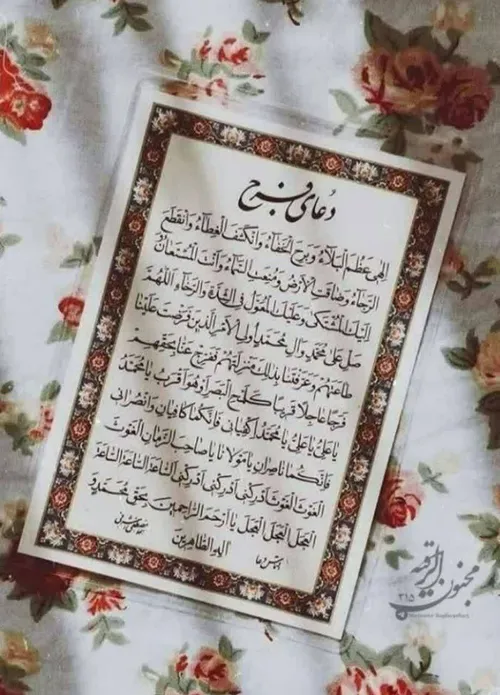 دعای فرج
اِلٰهی عَظُمَ الْبَلٰاۤءُ وَبَرِحَ الْخَفٰاۤءُ وَانْکَشَفَ الْغِطٰاۤءُ وَانْقَطَعَ
الرَّجٰاۤءُ وَضٰاقَتِ الْاَرْضُ وَمُنِعَتِ السَّمٰاۤءُ وَاَنْتَ الْمُسْتَعٰانُ وَ
اِلَیْکَ الْمُشْتَکیٰ وَعَلَیْکَ الْمُعَوَّلُ فِی الشِّدَّةِ وَالرَّخٰاۤءِ اَللّٰهُمَّ
صَلِّ عَلیٰ مُحَمَّدٍ وَاٰلِ مُحَمَّدٍ اُولِی الْاَمْرِ الَّذینَ فَرَضْتَ عَلَیْنٰا
طٰاعَتَهُمْ وَعَرَّفْتَنٰا بِذٰلِکَ مَنْزِلَتَهُمْ فَفَرِّجْ عَنّٰا بِحَقِّهِمْ
فَرَجًا عٰاجِلًا قَریبًا کَلَمْحِ الْبَصَرِ اَوْ هُوَ اَقْرَبُ یٰا مُحَمَّدُ
یٰا عَلِیُّ یٰا عَلِیُّ یٰا مُحَمَّدُ اِکْفِیٰانی فَاِنَّکُمٰا کٰافِیٰانِ وَانْصُرٰانی
فَاِنَّکُمٰا نٰاصِرٰانِ یٰا مَوْلٰانٰا یٰا صٰاحِبَ الزَّمٰانِ الْغَوْثَ
الْغَوْثَ الْغَوْثَ اَدْرِکْنی اَدْرِکْنی اَدْرِکْنی اَلسّٰاعَةَ السّٰاعَةَ السّٰاعَةَ
الْعَجَلَ الْعَجَلَ الْعَجَلَ یٰا اَرْحَمَ الرّٰاحِمینَ بِحَقِّ مُحَمَّدٍ وَ
اٰلِهِ الطّٰاهِرینَ
مجنون الرقیه
۳۱۵